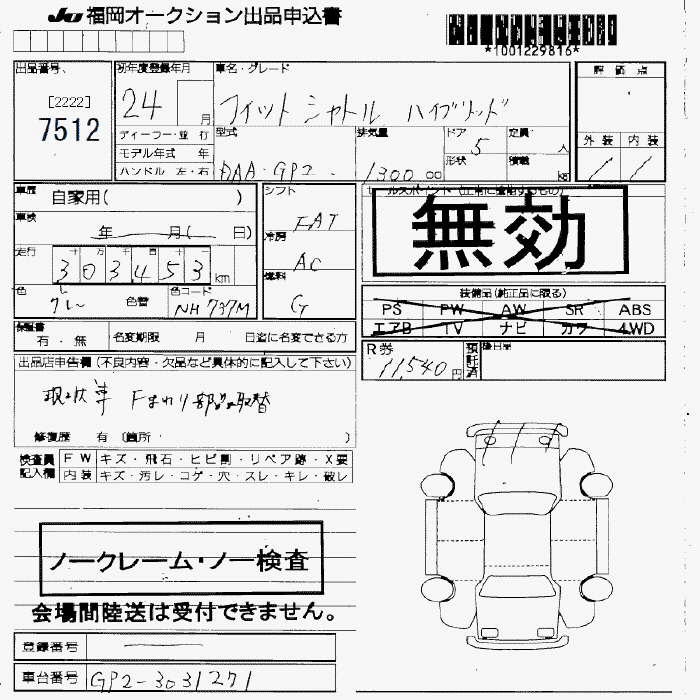 JU 福岡オークション出品申込書
*1001229816*
出品番号、 初年度登録年月 車名・グレード 評価点
[2222]
7512
24 月 フィット シャトル ハイブリッド
ディーラー・並行 型式 排気量 ドア 定員 人 外装 内装
モデル年式 年 5
ハンドル 左・右 DAA-GP2 1300 cc 形状 積載 kg
車歴 自家用( ) シフト FAT
セールスポイント(正常に機能するもの)
無効
車検 年 月( 日) 冷房 AC
走行 十 万 千 百 十 一
303453 km 燃料 G
色 グレー 色替 色コード NH737M
装備品(純正品に限る)
PS PW AW SR ABS
エアB TV ナビ カワ 4WD
保証書 有・無 名変期限 月 日迄に名変できる方
R券 11,540円 預託済 後日品
出品店申告欄(不良内容・欠品など具体的に記入して下さい)
現状車 Fまわり部品取替
修復歴 有(箇所・ )
検査員記入欄 FW キズ・飛石・ヒビ割・リペア跡・X要
内装 キズ・汚レ・コゲ・穴・スレ・キレ・破レ
ノークレーム・ノー検査
会場間陸送は受付できません。
登録番号
車台番号 GP2-3031271